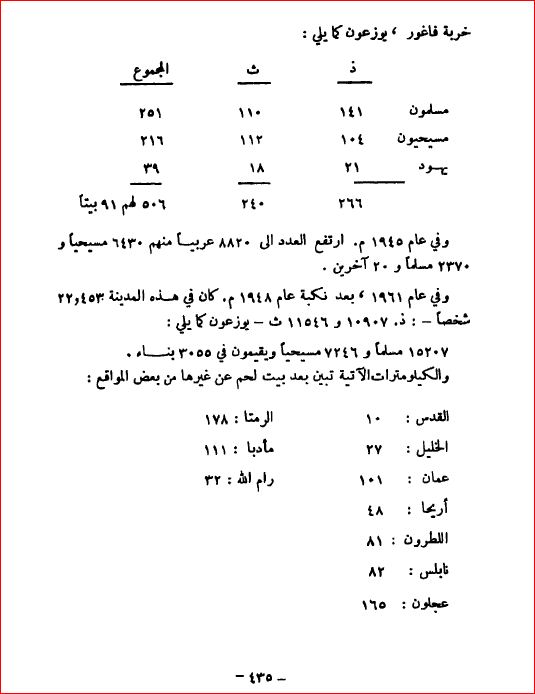 خربة فاغور ، يوزعون كما يلي :
ذ ث المجموع
مسلمون ١٤١ ١١٠ ٢٥١
مسيحيون ١٠٤ ١١٢ ٢١٦
يهود ٢١ ١٨ ٣٩
٢٦٦ ٢٤٠ ٥٠٦ لهم ٩١ بيتاً
وفي عام ١٩٤٥ م. ارتفع العدد الى ٨٨٢٠ عربياً منهم ٦٤٣٠ مسيحياً و
٢٣٧٠ مسلماً و ٢٠ آخرين .
وفي عام ١٩٦١ ، بعد نكبة عام ١٩٤٨ م. كان في هذه المدينة ٢٢,٤٥٣
شخصاً – : ذ. ١٠٩٠٧ و ١١٥٤٦ ث – يوزعون كما يلي :
١٥٢٠٧ مسلماً و ٧٢٤٦ مسيحياً ويقيمون في ٣٠٥٥ بناء .
والكيلومترات الآتية تبين بعد بيت لحم عن غيرها من بعض المواقع :
القدس : ١٠ الرمتا : ١٧٨
الخليل : ٢٧ مأدبا : ١١١
عمان : ١٠١ رام الله : ٣٢
أريحا : ٤٨
اللطرون : ٨١
نابلس : ٨٢
عجلون : ١٦٥
– ٤٣٥ –